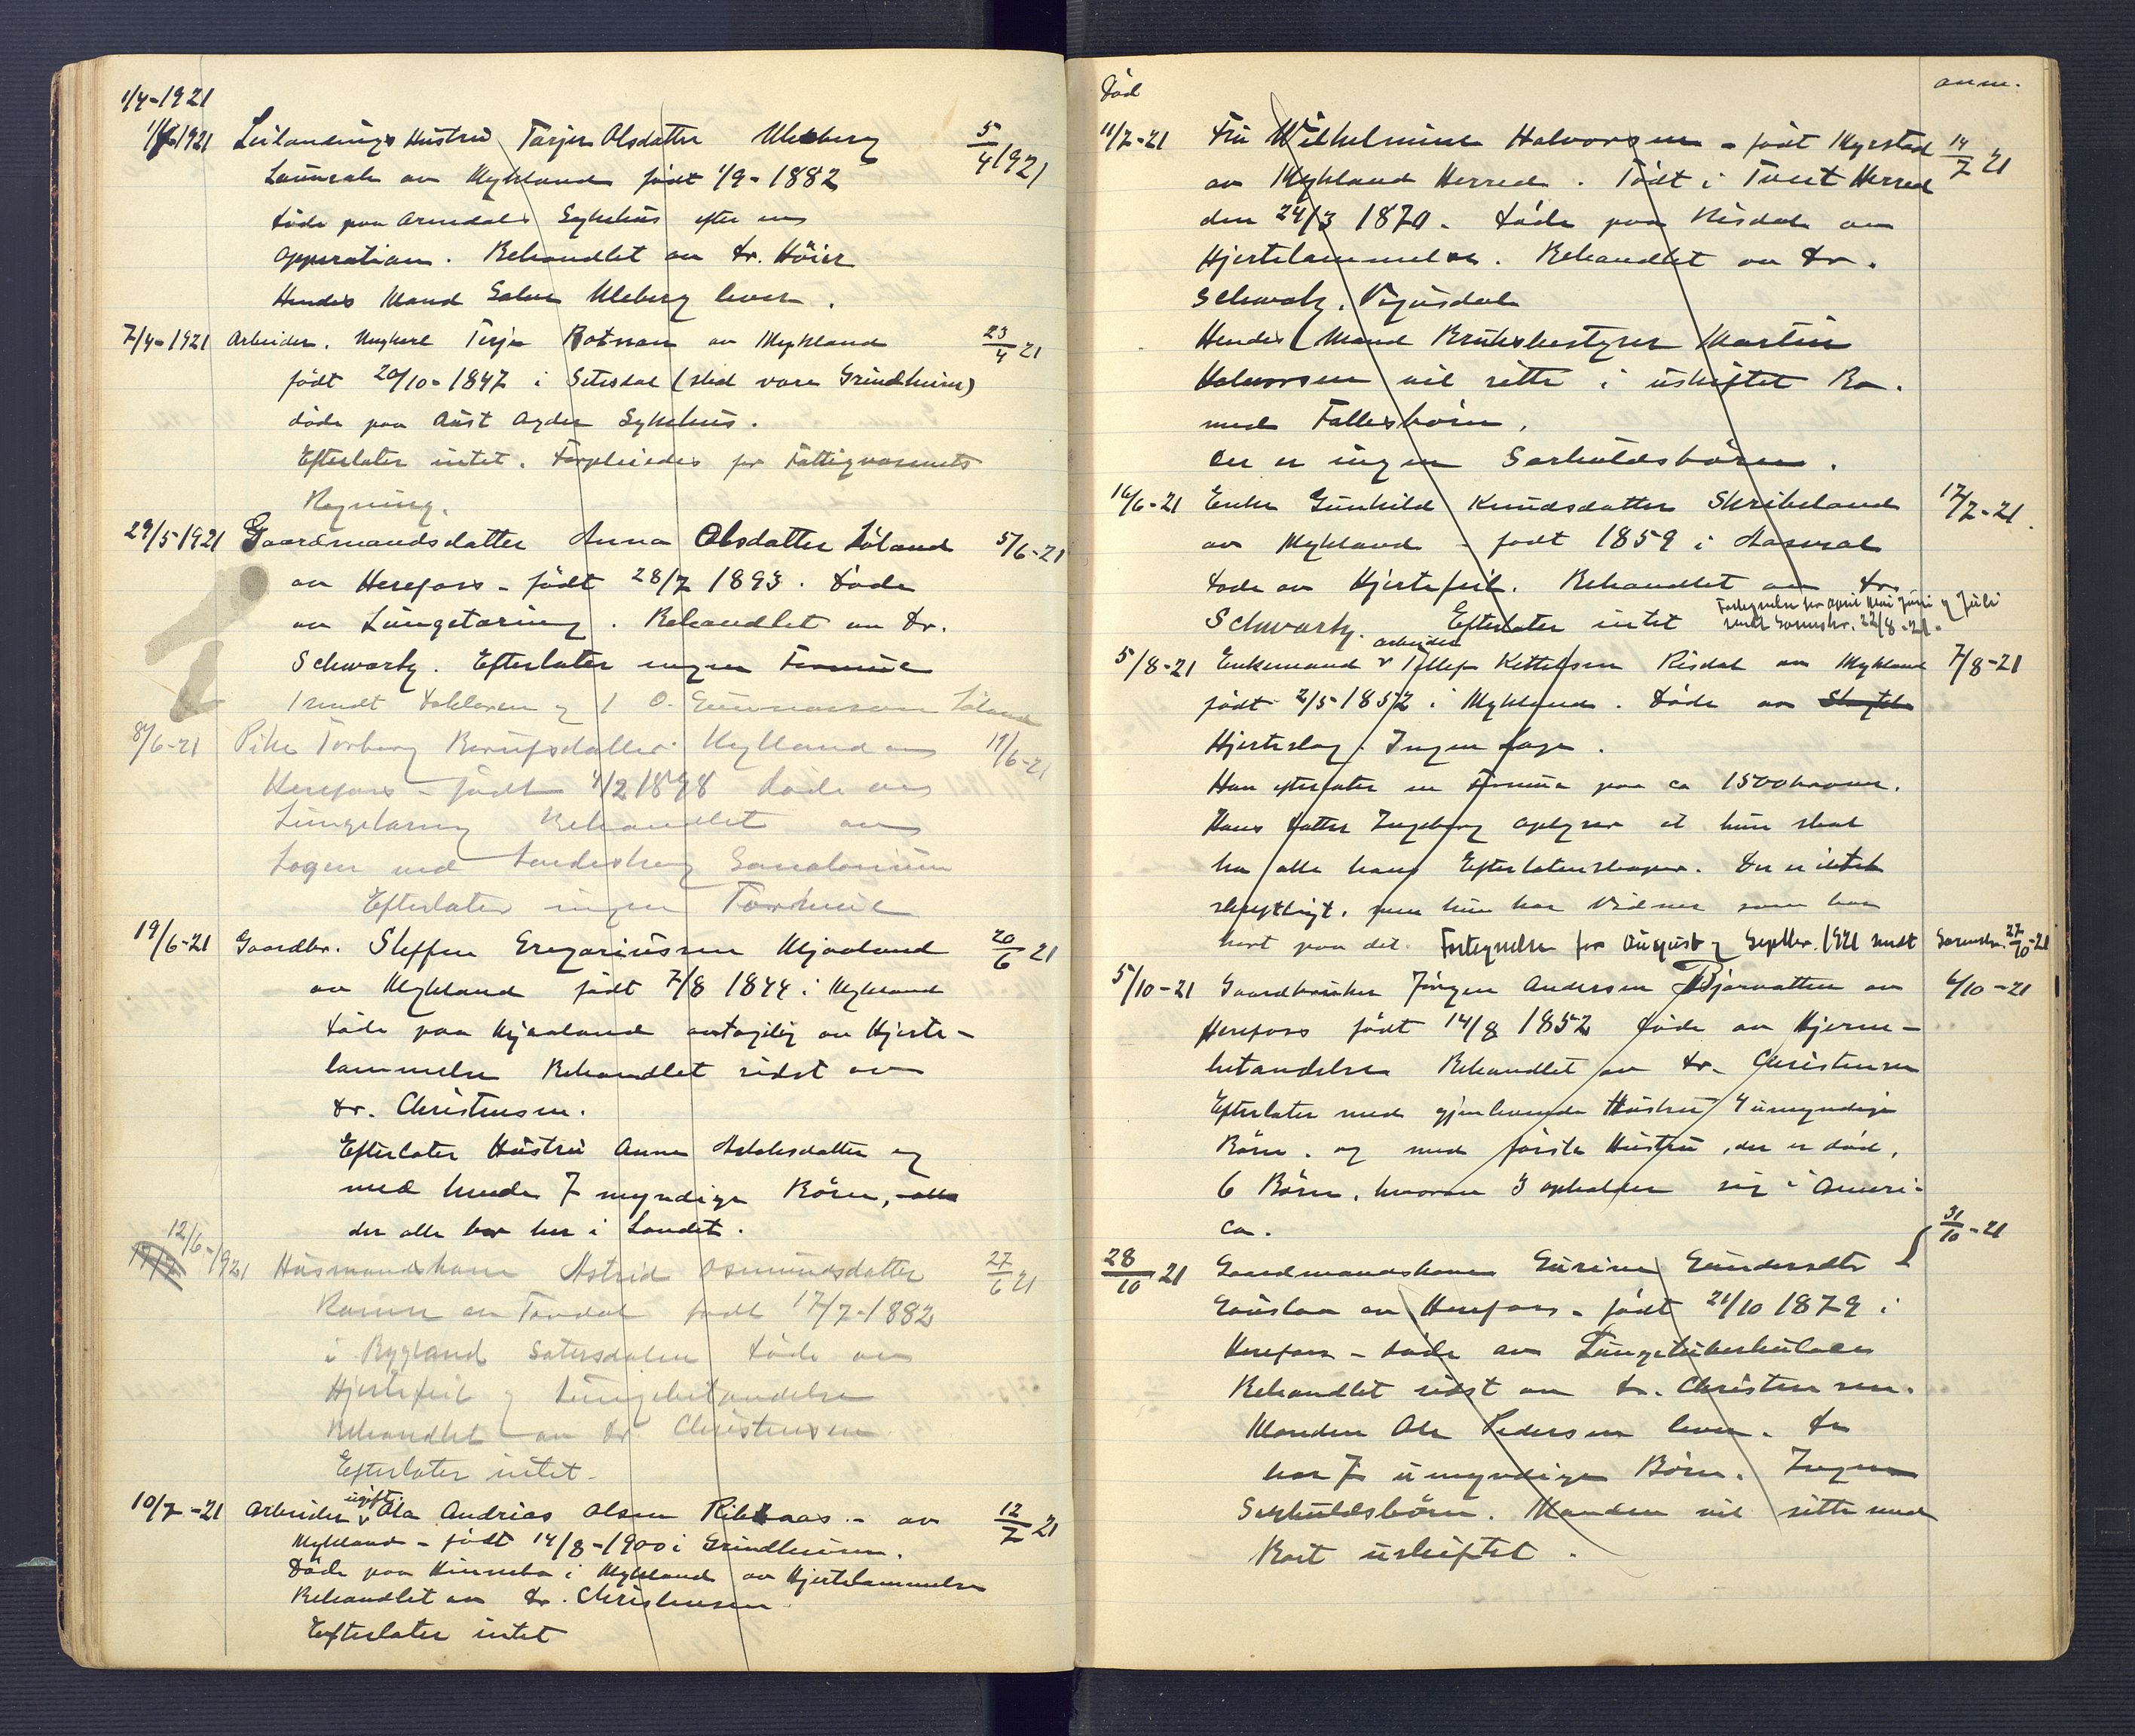 1/4-1921
1/4 1921 Leilændings Hustru Tarjer Olsdatter Uleberg 5/4 1921
Lauvrak av Mykland født 1/9-1882
døde paa Arendals Sykehus efter en
opperation. Behandlet av Dr. Höier
Hendes Mand Salve Uleberg lever.
7/4-1921 Arbeider. Ungkarl Terje Rotnan av Mykland 23/4 21
født 20/10-1847 i Setesdal (sted være Grindheim)
døde paa Aust Agder Sykehus.
Efterlater intet. Forpleiedes for Fattigvæsenets
Regning.
29/5 1921 Gaardmandsdatter Anna Olsdatter Löland 5/6-21
av Herefoss - født 28/7 1893. Døde
av Lungetæring. Behandlet av Dr.
Schwartz. Efterlater ingen Formue
1 sendt Doktoren og 1 O. Gunnarson Löland
8/6-21 Pike Torborg Berufsdatter Kylland av 11/6-21
Herefoss - født 4/2 1898 døde av
Lungetæring Behandlet av
Lægen ved Landeskog Sanatorium
Efterlater ingen Formue
19/6-21 Gaardbr. Steffen Gregariussen Mjaaland 20/6 21
av Mykland født 7/8 1844 i Mykland
døde paa Mjaaland antagelig av Hjerte-
lammelse Behandlet sidst av
Dr. Christensen.
Efterlater Hustru Anne Aslaksdatter og
med hende 7 myndige Börn, alle
der alle bor her i Landet.
12/6-1921 Husmandskone Astrid Osmundsdatter 27/6 21
Ramse av Tovdal født 17/7-1882
i Bygland Sætersdalen døde av
Hjertefeil og Lungebetændelse
Behandlet av Dr Christensen
Efterlater intet.
10/7-21 Arbeider ugift. Ola Andrias Olsen Risaas - av 12/7 21
Mykland - født 14/8-1900 i Grindheim.
Døde paa i Mykland av Hjertelammelse
Behandlet av Dr. Christensen
Efterlater intet
Død anm.
11/7-21 Fru Wilhelmine Halvorsen - født Myrstad 14/7 21
av Mykland Herred. Født i Tveit Herred
den 24/3 1870. Døde paa Risdal av
Hjertelammelse. Behandlet av Dr.
Schwartz, Vegusdal
Hendes Mand Bruksbestyrer Martin
Halvorsen vil sitte i uskiftet Bo.
med Fællesbörn.
Der er ingen Særkuldsbörn.
16/6-21 Enke Gunhild Knudsdatter Skribeland 17/7-21.
av Mykland - født 1859 i Aaseral
døde av Hjertefeil. Behandlet av Dr.
Schwartz. Efterlater intet Fortegnelse for April Mai Juni og Juli
sendt Sorenskr. 22/8-21.
5/8-21 Enkemand arbeider Tellef Kittelsen Risdal av Mykland 7/8-21
født 2/5-1852 i Mykland. Døde av
Hjerteslag. Ingen Læge.
Han efterlater en Formue paa ca 1500 kroner.
Hans Datter Ingeborg oplyser at hun skal
ha alle hans Efterlatenskaper. Der er intet
skriftligt, men hun har Vidner som har
hört paa det. Fortegnelse for August og Septbr. 1921 sendt Sorenskr. 27/10-21
5/10-21 Gaardbruker Jörgen Andersen Bjorvatten av 6/10-21
Herefoss født 14/8 1852 døde av Hjerne-
betændelse Behandlet av Dr. Christensen
Efterlater med gjenlevende Hustru 4 umyndige
Börn. og med förste Hustru, der er död,
6 Börn, hvorav 3 opholder sig i Ameri-
ca.
28/10 21 Gaardmandskone Gurine Gundersdtr 31/10-21
Gauslaa av Herefoss - født 21/10 1879 i
Herefoss - døde av Lungetuberkulose
Behandlet sidst av Dr. Christensen.
Manden Ole Pedersen lever. De
har 7 umyndige Börn. Ingen
Særkuldsbörn. Manden vil sitte med
Boet uskiftet.